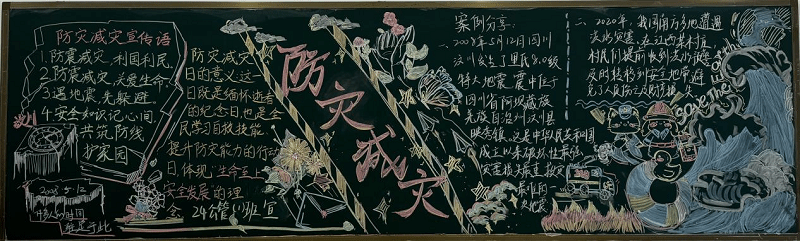 防灾减灾宣传语
1.防震减灾,利国利民
2.防震减灾,关爱生命
3.遇地震,先躲避
4.安全知识记心间
共筑防线
护家园
2008.5.12
防灾减灾
日的意义这一
日既是缅怀逝者
的纪念日,也是全
民学习自救技能、
提升防灾能力的行动
日,体现“生命至上
安全发展的理
念.24公管(1)班宣
防灾减灾
案例分享:
一、2008年5月12日四川
汶川发生了里氏8.0级
特大地震,震中位于
四川省阿坝藏族
羌族自治州汶川县
映秀镇,这是中华人民共和国
成立以来破坏性最强、
灾害损失最重、救灾
最难的一
次地震
二、2020年,我国南方多地遭遇
洪涝灾害,在江西某村庄,
村民们提前收到
及时转移到安全地带避
Save the Earth